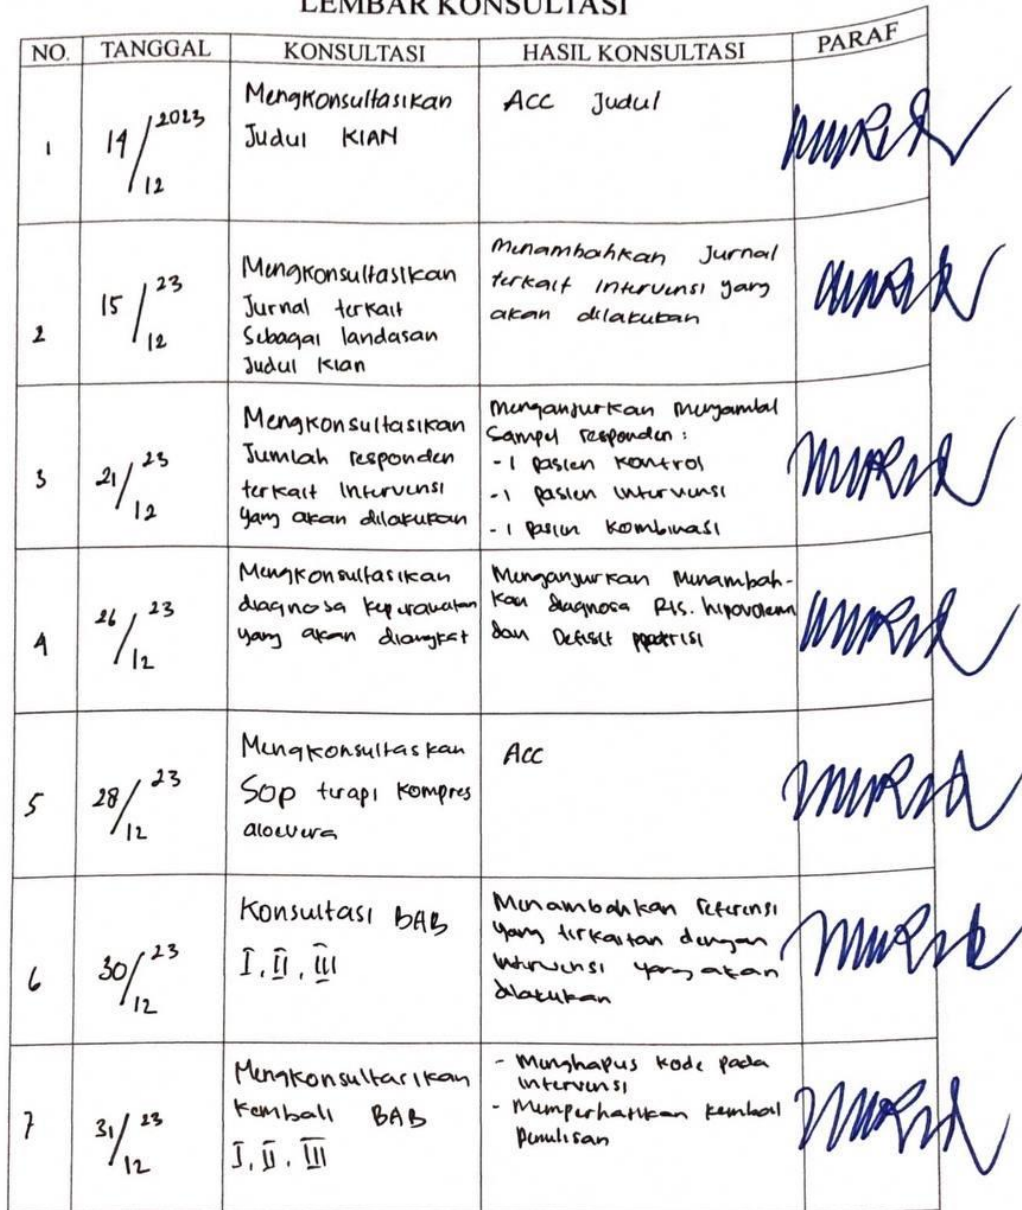 LEMBAR KONSULTASI
NO. TANGGAL KONSULTASI HASIL KONSULTASI PARAF
1 14/12 2023
Mengkonsultasikan
Judul KIAN
Acc Judul
2 15/12 23
Mengkonsultasikan
Jurnal terkait
Sebagai landasan
Judul Kian
Menambahkan Jurnal
terkait intervensi yang
akan dilakukan
3 21/12 23
Mengkonsultasikan
Jumlah responden
terkait Intervensi
yang akan dilakukan
Menganjurkan mengambil
Sampel responden :
- 1 pasien kontrol
- 1 pasien intervensi
- 1 pasien kombinasi
4 26/12 23
Mengkonsultasikan
diagnosa keperawatan
yang akan diangkat
Menganjurkan Menambah-
kan diagnosa Ris. hipovolemi
dan Defisit
5 28/12 23
Mengkonsultaskan
SOP terapi kompres
aloevera
Acc
6 30/12 23
Konsultasi BAB
I, II, III
Menambahkan referensi
yang terkaitan dengan
intervensi yang akan
dilakukan
7 31/12 23
Mengkonsultasikan
kembali BAB
I, II, III
- Menghapus kode pada
intervensi
- Memperhatikan kembali
penulisan